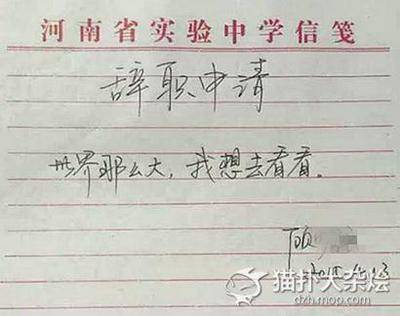 河南省实验中学信笺
辞职申请
世界那么大，我想去看看。
顾
猫扑大杂烩
dzh.mop.com